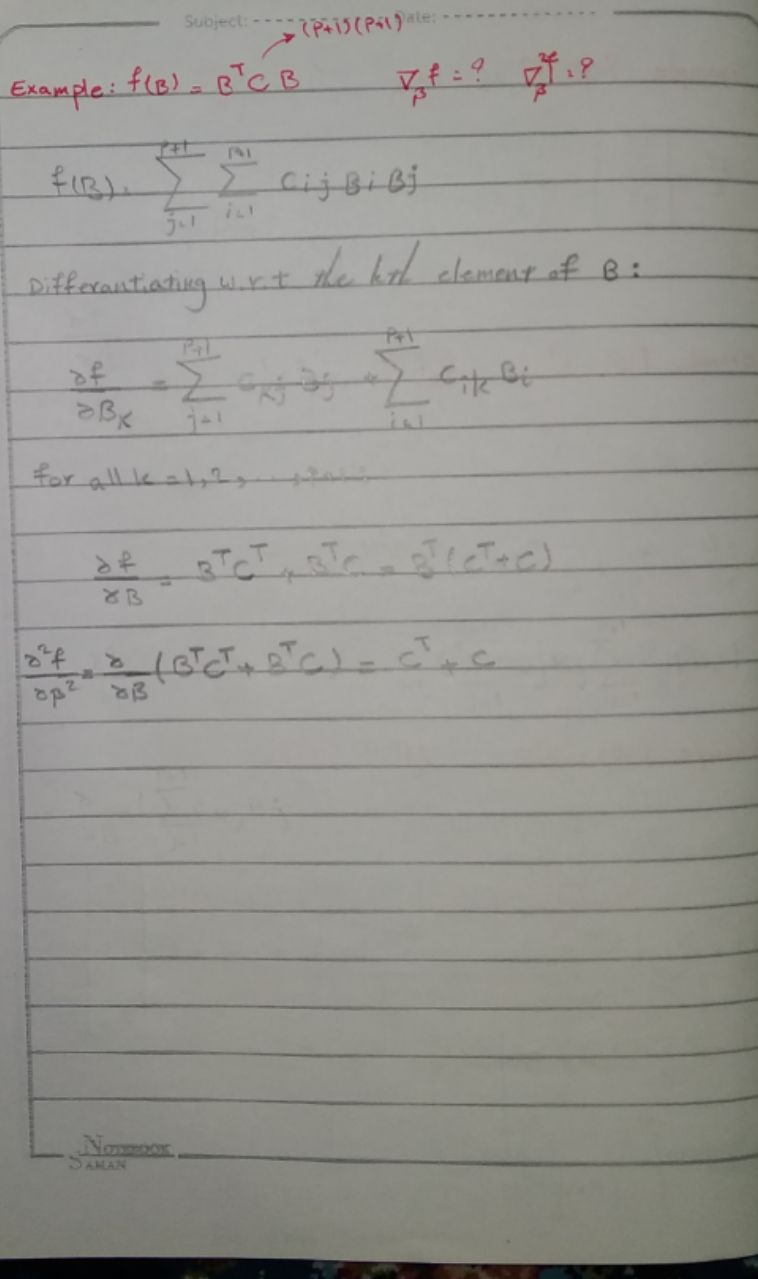 Subject: Date:
(P+1)(P+1)
Example: f(B) = BᵀCB ∇_β f = ? ∇²_β f = ?
f(B) = Σ_{j=1}^{P+1} Σ_{i=1}^{P+1} Cij Bi Bj
Differantiating w.r.t the kth element of B:
∂f/∂B_K = Σ_{j=1}^{P+1} C_Kj Bj + Σ_{i=1}^{P+1} C_ik Bi
for all k = 1, 2, ...
∂f/∂B = BᵀCᵀ + BᵀC = Bᵀ(Cᵀ+C)
∂²f/∂β² = ∂/∂B (BᵀCᵀ + BᵀC) = Cᵀ + C
NOTEBOOK
SAMAN